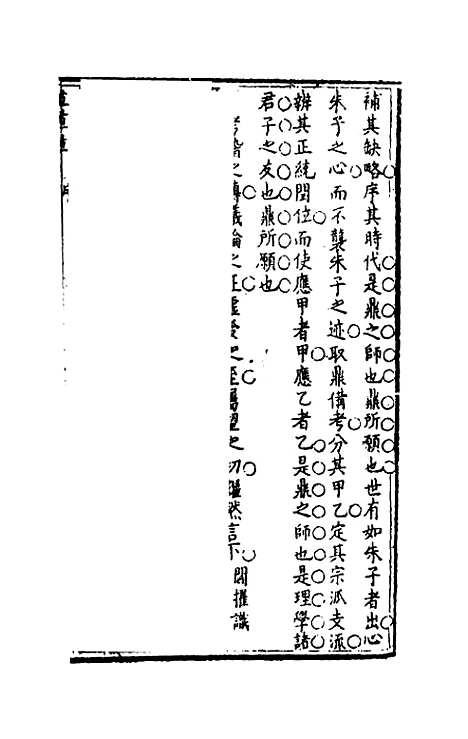 補其缺略序其時代是鼎之師也鼎所願也世有如朱子者出心
朱子之心而不襲朱子之迹取鼎備考分其甲乙定其宗派支派
辨其正統閏位而使應甲者甲應乙者乙是鼎之師也是理學諸
君子之友也鼎所願也
之博議論之正虛受之至屬望之切繼然言下 閻擢識